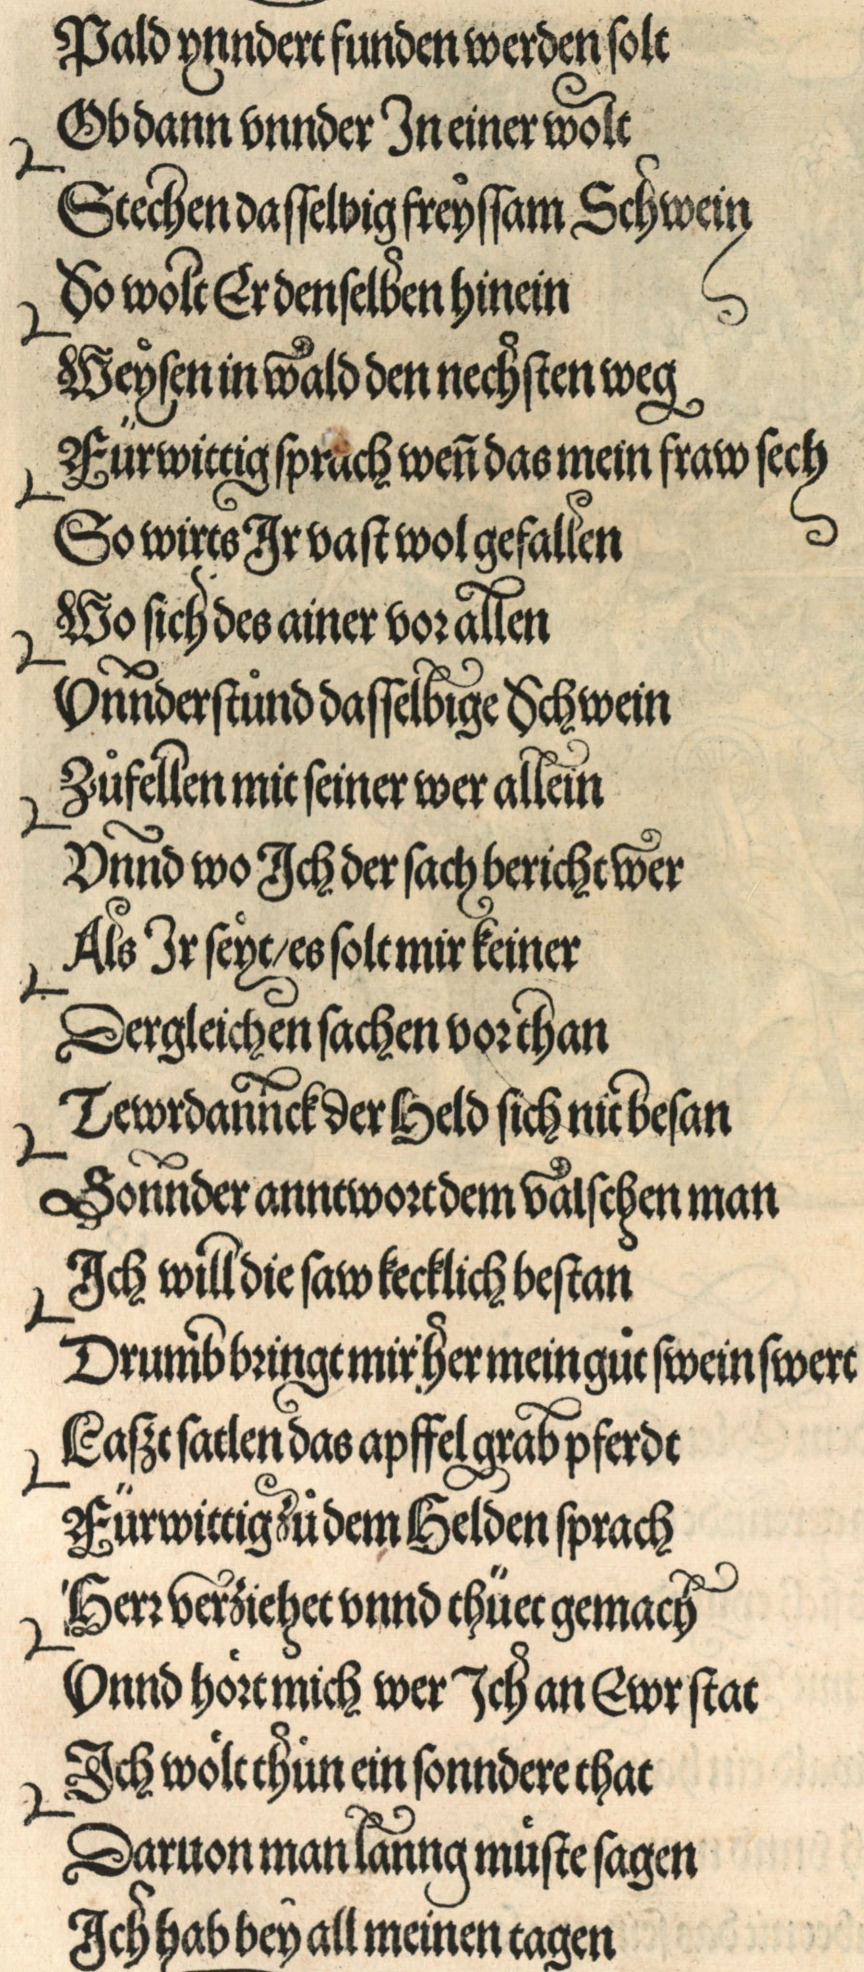 Pald ynndert funden werden solt
Ob dann vnnder In einer wolt
Stechen dasselbig freyssam Schwein
So wolt Er denselben hinein
Weysen in wald den nechsten weg
Fürwittig sprach weñ das mein fraw sech
So wirts Ir vast wol gefallen
Wo sich des ainer vor allen
Vnnderstůnd dasselbige Schwein
Zůfellen mit seiner wer allein
Vnnd wo Ich der sach bericht wer
Als Ir seyt/es solt mir keiner
Dergleichen sachen vor than
Tewrdannck der Held sich nit besan
Sonnder anntwort dem valschen man
Ich will die saw kecklich bestan
Drumb bringt mir her mein gůt swein swert
Laszt satlen das apffelgrab pferdt
Fürwittig zů dem Helden sprach
Herr verziehet vnnd thüet gemach
Vnnd hört mich wer Ich an Ewr stat
Ich wölt thůn ein sonndere that
Daruon man lanng müste sagen
Ich hab bey all meinen tagen